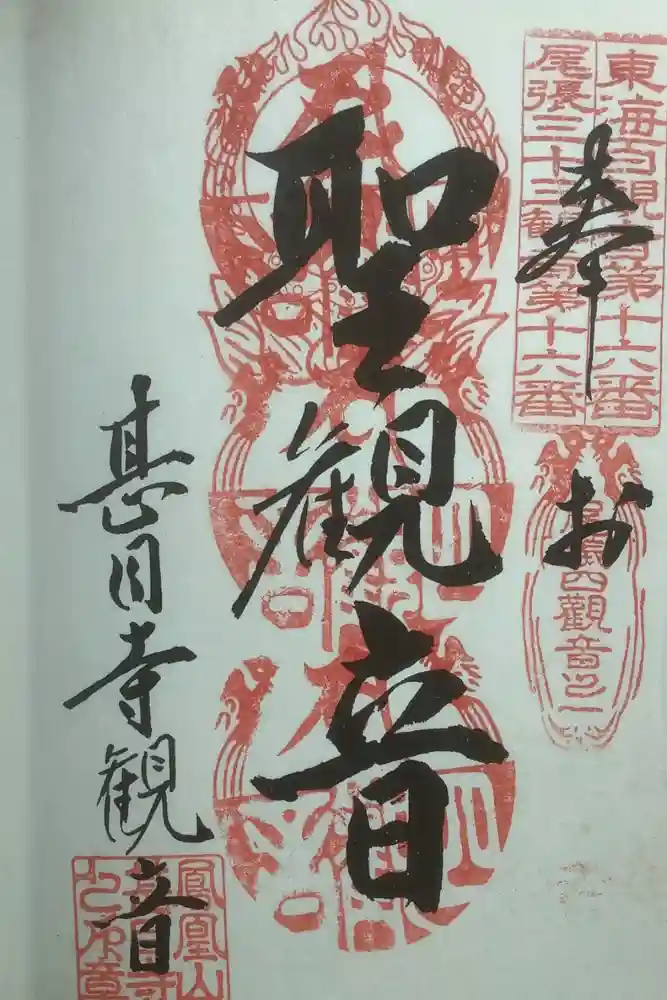 東海百観音第十六番
尾張三十三観音第十六番
奉
四觀音之一
聖観音
甚目寺観音
鳳凰山